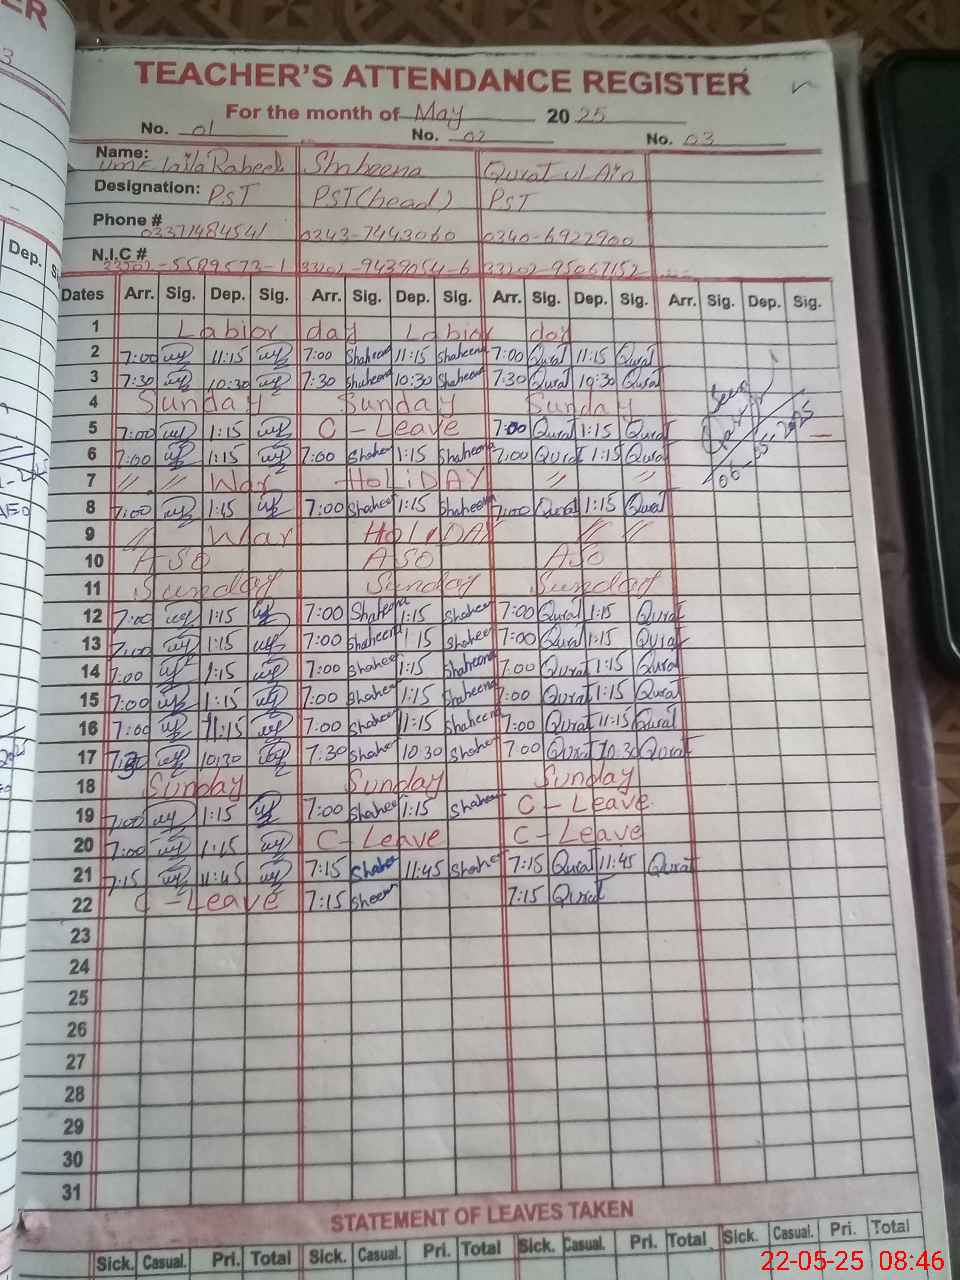 TEACHER'S ATTENDANCE REGISTER
For the month of May 2025
No. 01 No. 02 No. 03
Name: Laila Raheel Shaheena Qurat ul Ain
Designation: PST PST(head) PST
Phone # 03371484541 0343-7443060 0340-6922900
N.I.C # 33202-9439054-6 33202-95067152
Dates Arr. Sig. Dep. Sig. Arr. Sig. Dep. Sig. Arr. Sig. Dep. Sig. Arr. Sig. Dep. Sig.
1 Labior day Labior day
2 7:00 11:15 7:00 Shaheena 11:15 Shaheena 7:00 Qurat 11:15 Qurat
3 7:30 10:30 7:30 Shaheena 10:30 Shaheena 7:30 Qurat 10:30 Qurat
4 Sunday Sunday Sunday
5 7:00 1:15 C-Leave 7:00 Qurat 1:15 Qurat
6 7:00 1:15 7:00 Shaheen 1:15 Shaheena 7:00 Qurat 1:15 Qurat
7 // // War HOLiDAY // //
8 7:00 1:15 7:00 Shaheen 1:15 Shaheena 7:00 Qurat 1:15 Qurat
9 // War HOLIDAY // //
10 ASO ASO ASO
11 Sunday Sunday Sunday
12 7:00 1:15 7:00 Shaheena 1:15 Shaheen 7:00 Qurat 1:15 Qurat
13 7:00 1:15 7:00 Shaheena 1:15 Shaheen 7:00 Qurat 1:15 Qurat
14 7:00 1:15 7:00 Shaheen 1:15 Shaheena 7:00 Qurat 1:15 Qurat
15 7:00 1:15 7:00 Shaheen 1:15 Shaheena 7:00 Qurat 1:15 Qurat
16 7:00 11:15 7:00 Shaheen 11:15 Shaheena 7:00 Qurat 11:15 Qurat
17 7:30 10:30 7:30 Shaheen 10:30 Shaheen 7:00 Qurat 10:30 Qurat
18 Sunday Sunday Sunday
19 7:00 1:15 7:00 Shaheen 1:15 Shaheen C-Leave
20 7:00 1:15 C-Leave C-Leave
21 7:15 11:45 7:15 Shaheen 11:45 Shaheen 7:15 Qurat 11:45 Qurat
22 C-Leave 7:15 Sheen 7:15 Qurat
23
24
25
26
27
28
29
30
31
Seen
06-05-2025
STATEMENT OF LEAVES TAKEN
Sick. Casual. Pri. Total Sick. Casual. Pri. Total Sick. Casual. Pri. Total Sick. Casual. Pri. Total
22-05-25 08:46